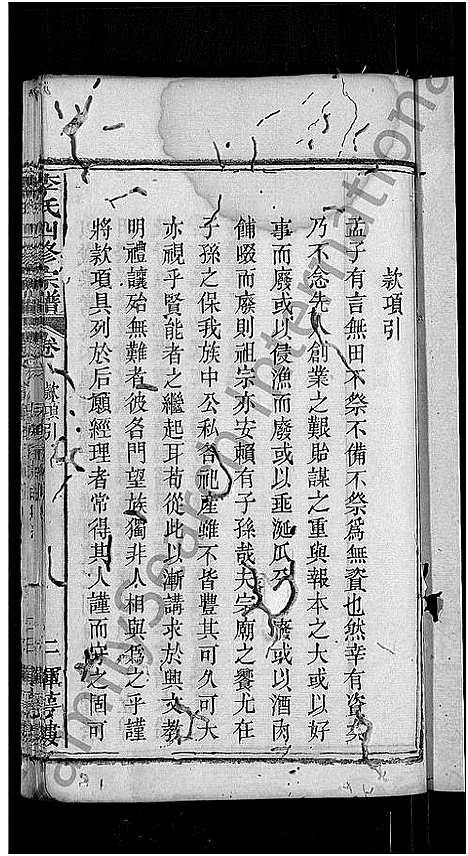 款項引
孟子有言無田不祭不備不祭爲無資也然幸有資矣
乃不念先人創業之艱貽謀之重與報本之大或以好
事而廢或以侵漁而廢或以垂涎瓜 廢或以酒肉
餔啜而廢則祖宗亦安賴有子孫哉夫宗廟之饗尤在
子孫之保我族中公私各祀產雖不皆豐其可久可大
亦視乎賢能者之繼起耳苟從此以漸講求於興文教
明禮讓殆無難者彼各門望族獨非人相與爲之乎謹
將款項具列於后願經理者常得其人謹而 之固可
李氏四修宗譜
卷 款項引
FamilySearch International